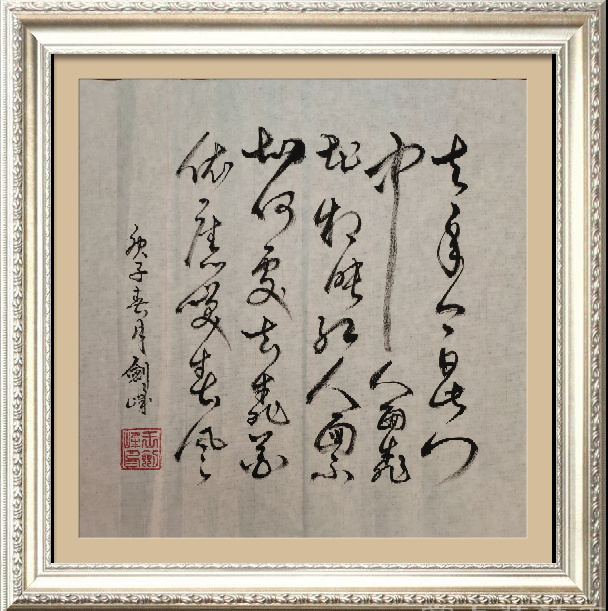 去年今日此門
中人面桃
花相映紅人面不
知何處去桃花
依舊笑春風
庚子春月劍峰